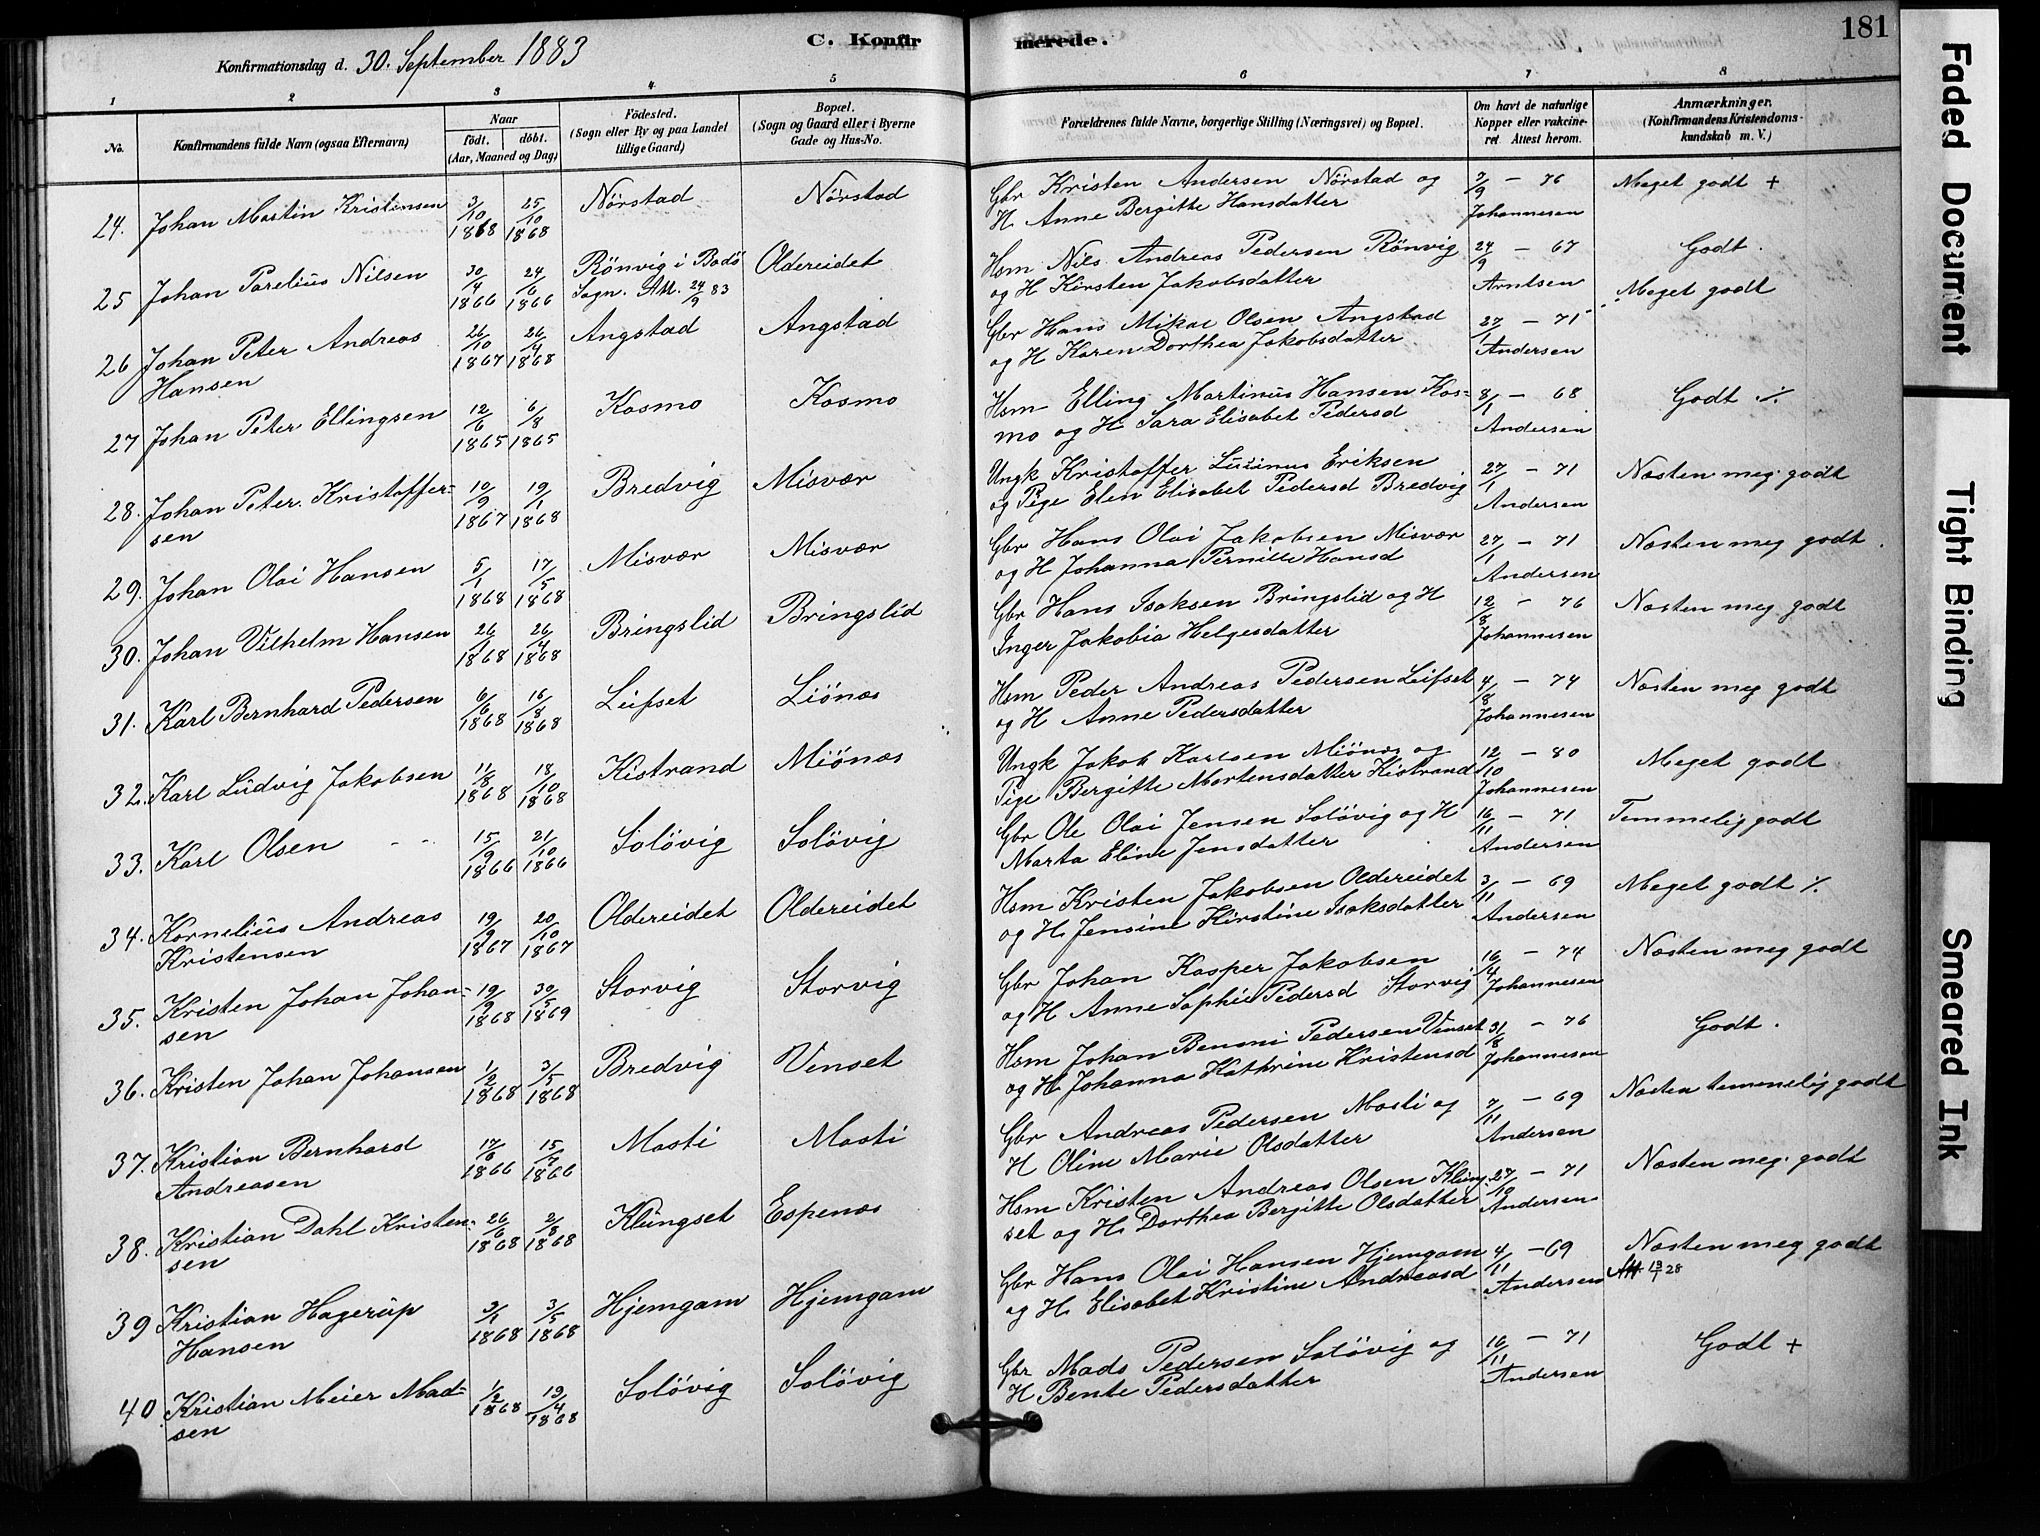 181
Konfirmationsdag d. 30. September 1883
C. Konfirmerede.
1 2 3 4 5 6 7 8
No.
Konfirmandens fulde Navn (ogsaa Efternavn)
Naar
födt. döbt.
(Aar, Maaned og Dag)
Födested.
(Sogn eller By og paa Landet
tillige Gaard)
Bopæl.
(Sogn og Gaard eller i Byerne
Gade og Hus-No.
Forældrenes fulde Navne, borgerlige Stilling (Næringsvei) og Bopæl.
Om havt de naturlige
Kopper eller vakcine-
ret Attest herom.
Anmærkninger.
(Konfirmandens Kristendoms-
kundskab m. V.)
24. Johan Martin Kristensen 3/10 1868 25/10 1868 Nörstad Nörstad Gbr Kristen Andersen Nörstad og 7/9 - 76 Meget godt +
H Anne Bergitte Hansdatter Johannesen
25 Johan Parelius Nilsen 30/4 1866 24/6 1866 Rönvig i Bodö Oldereidet Hsm Nils Andreas Pedersen Rönvig 24/9 - 67 Godt.
Sogn. Att. 24/9 83 og H Kirsten Jakobsdatter Arntsen
26 Johan Peter Andreas 26/10 1867 26/4 1868 Angstad Angstad Gbr Hans Mikal Olsen Angstad 27/1 - 71 Meget godt
Hansen og H Karen Dorthea Jakobsdatter Andersen
27 Johan Peter Ellingsen 12/6 1865 6/8 1865 Kosmo Kosmo Hsm Elling Martinus Hansen Kos- 8/1 - 68 Godt ./.
mo og H Sara Elisabet Pedersd Andersen
28. Johan Peter Kristoffer- 10/9 1867 19/1 1868 Bredvig Misvær Ungk Kristoffer Eriksen 27/1 - 71 Næsten meg. godt
sen og Pige Elen Elisabet Pedersd Bredvig Andersen
29. Johan Olai Hansen 5/1 1868 17/5 1868 Misvær Misvær Gbr Hans Olai Jakobsen Misvær 27/1 - 71 Næsten meg godt.
og H Johanna Pernille Hansd Andersen
30. Johan Vilhelm Hansen 26/1 1868 26/4 1868 Bringslid Bringslid Gbr Hans Isaksen Bringslid og H 12/8 - 76 Næsten meg godt
Inger Jakobia Helgesdatter Johannesen
31. Karl Bernhard Pedersen 6/6 1868 16/8 1868 Leifset Liönæs Hsm Peder Andreas Pedersen Leifset 4/8 - 74 Næsten meg godt
og H Anne Pedersdatter Johannesen
32. Karl Ludvig Jakobsen 11/8 1868 18/10 1868 Kistrand Miönæs Ungk Jakob Karlsen Miönæs og 12/10 - 80 Meget godt
Pige Bergitte Mortensdatter Kistrand Johannesen
33. Karl Olsen 15/9 1866 21/10 1866 Solövig Solövig Gbr Ole Olai Jensen Solövig og H 16/11 - 71 Temmelig godt
Marta Eline Jensdatter Andersen
34. Kornelius Andreas 19/9 1867 20/10 1867 Oldereidet Oldereidet Hsm Kristen Jakobsen Oldereidet 3/11 - 69 Meget godt ./.
Kristensen og H Jensine Kirstine Isaksdatter Andersen
35. Kristen Johan Johan- 19/9 1868 30/5 1869 Storvig Storvig Gbr Johan Kasper Jakobsen 16/4 - 74 Næsten meg godt
sen og H Anne Sophie Pedersd Storvig Johannesen
36. Kristen Johan Johansen 1/2 1868 3/5 1868 Bredvig Venset Hsm Johan Benoni Pedersen Venset 31/8 - 76 Godt.
og H Johanna Kathrine Kristensd Johannesen
37. Kristian Bernhard 17/6 1866 15/7 1866 Mosti Mosti Gbr Andreas Pedersen Mosti og 7/11 - 69 Næsten temmelig godt
Andreasen H Oline Marie Olsdatter Andersen
38. Kristian Dahl Kristen- 26/6 1868 2/8 1868 Klungset Espenæs Hsm Kristen Andreas Olsen Klung- 27/10 - 71 Næsten meg. godt
sen set og H Dorthea Bergitte Olsdatter Andersen
39 Kristian Hagerup 3/1 1868 3/5 1868 Hjemgam Hjemgam Gbr Hans Olai Hansen Hjemgam 4/11 - 69 Næsten meg godt
Hansen og H Elisabet Kristine Andreasd Andersen Att 13/1 28
40 Kristian Meier Mad- 1/2 1868 13/4 1868 Solövig Solövig Gbr Mads Pedersen Solövig og 16/11 - 71 Godt +
sen H Bente Pedersdatter Andersen
Faded Document
Tight Binding
Smeared Ink